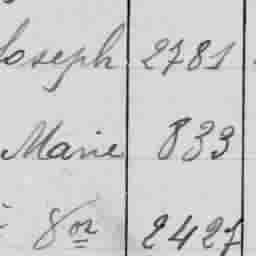 Joseph 2781
Marie 833
2427